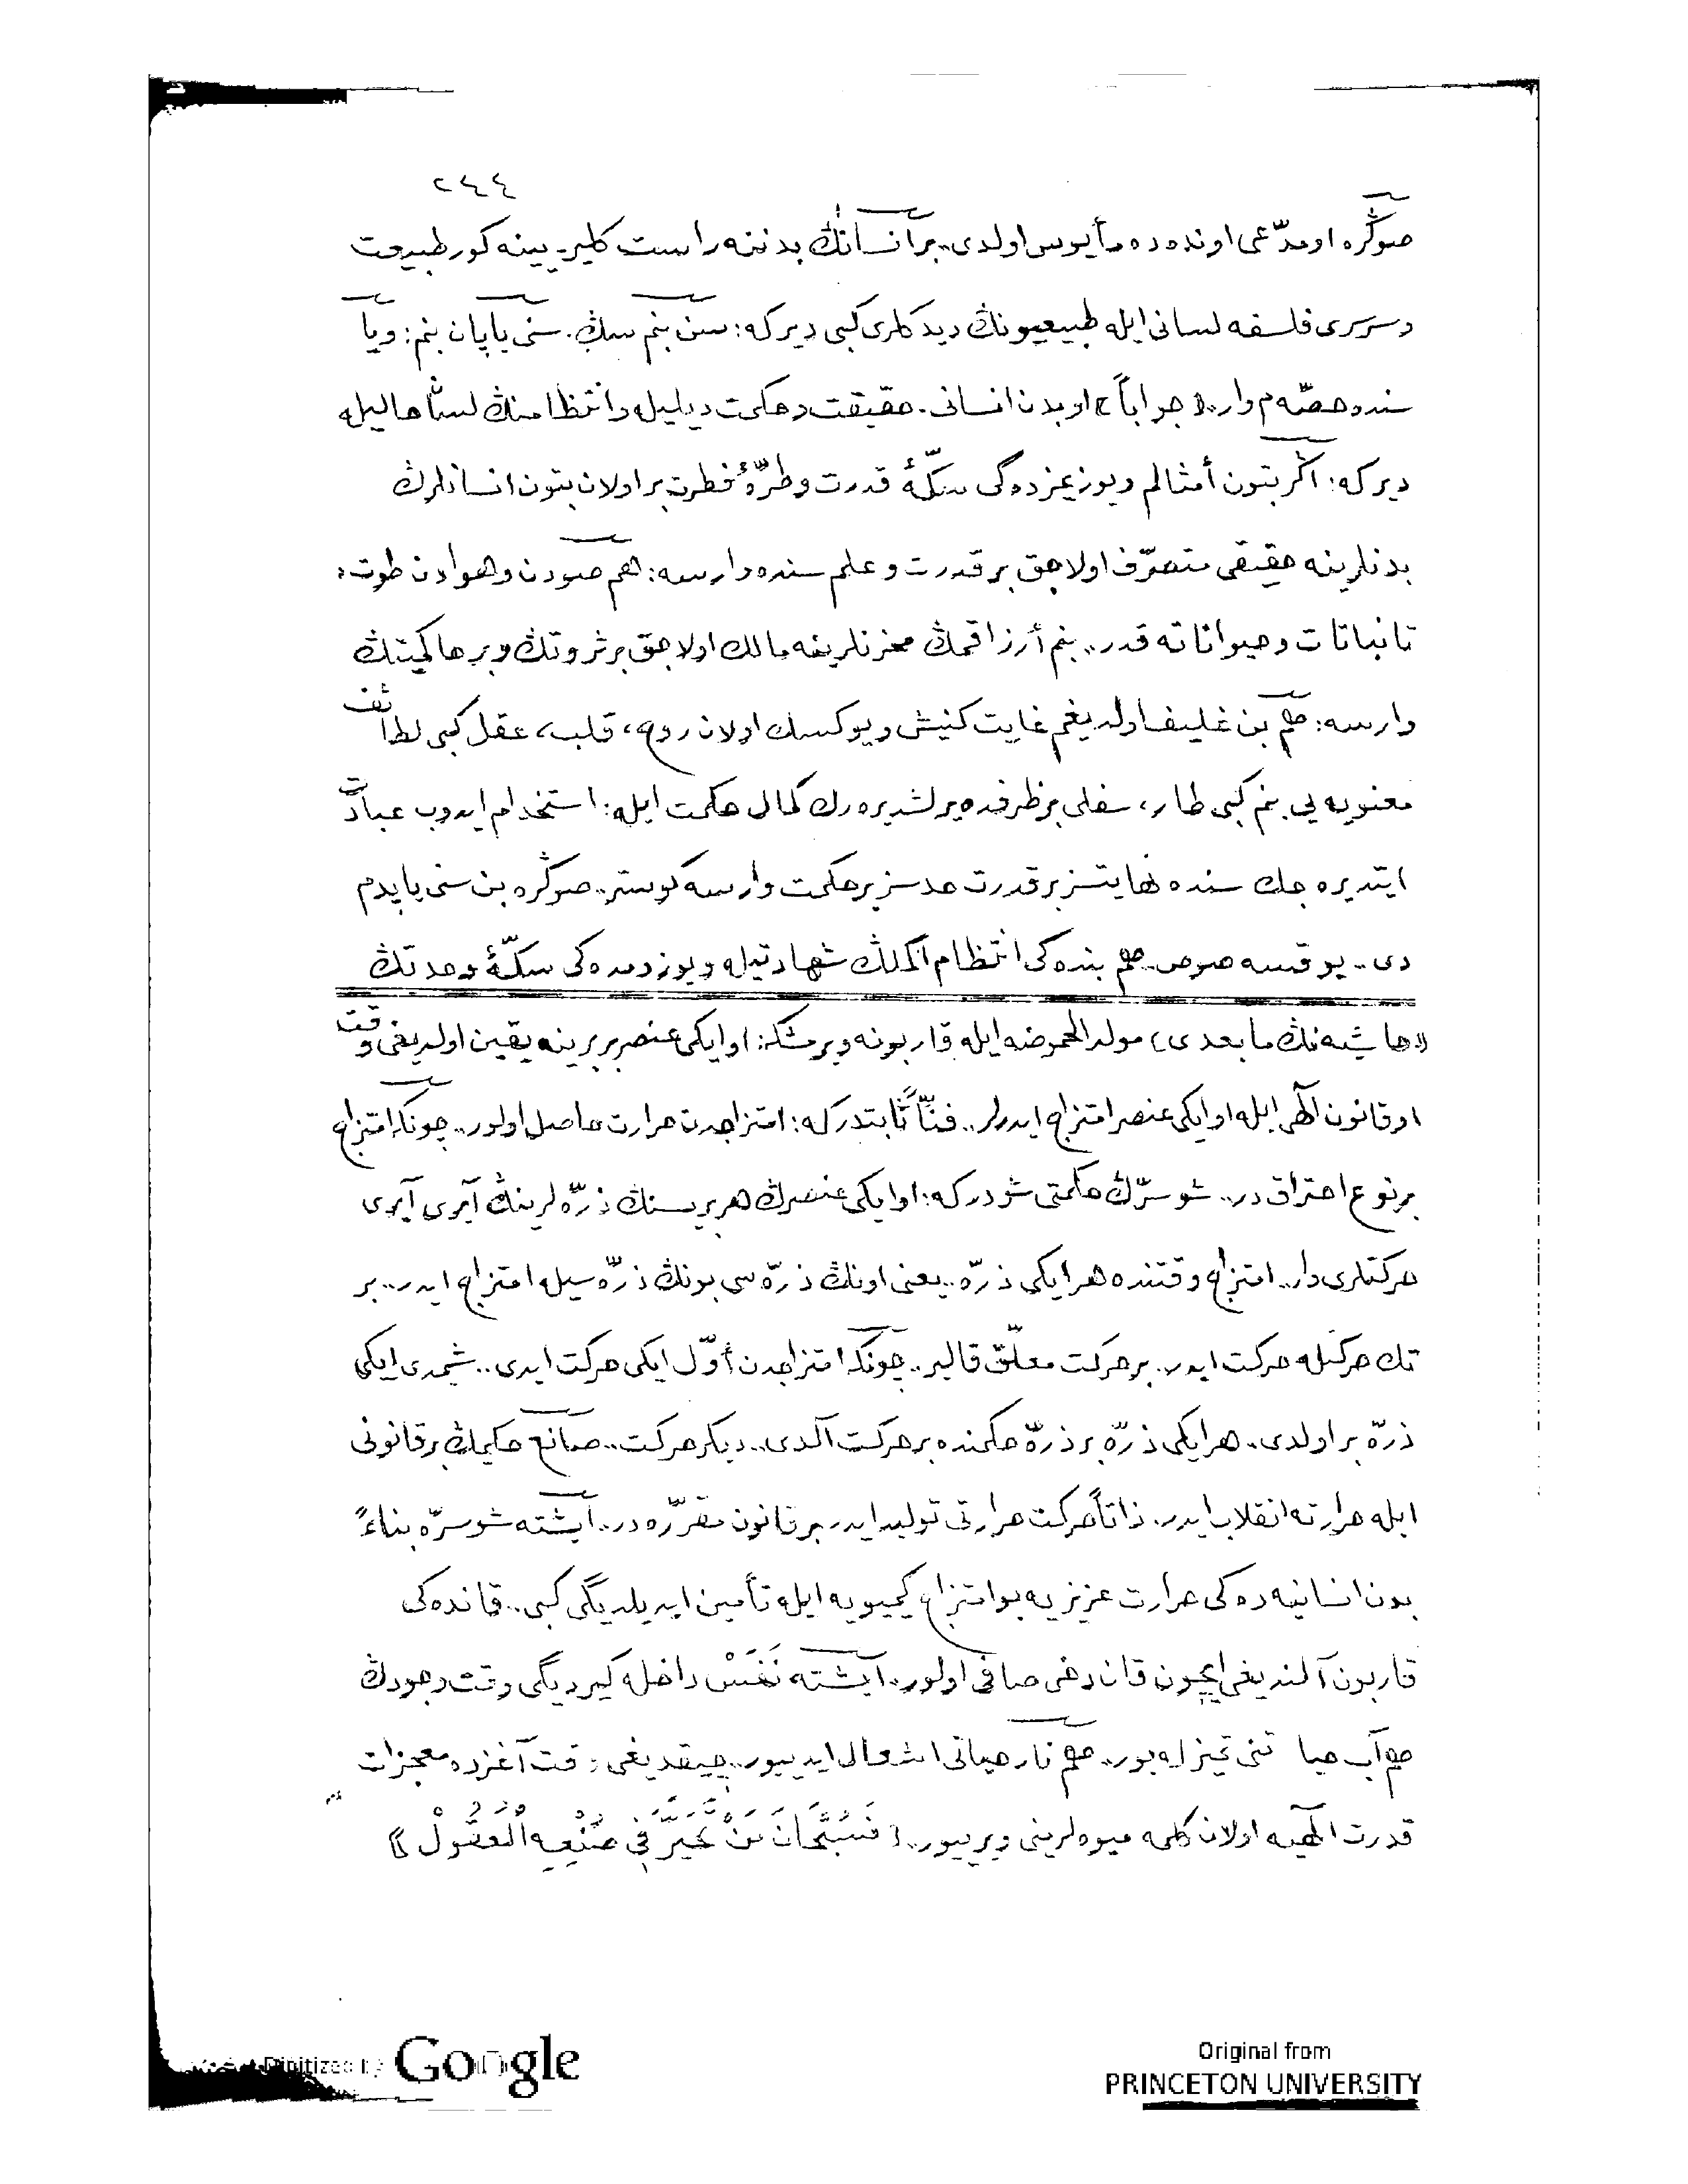 ٢٤٤
صوڭره او مدّعى اونده‌ده مأيوس اولدى.. بر انسانڭ بدننه راست كلير. يينه كور طبيعت
و سرسرى فلسفه لسانى ايله طبيعيونڭ ديدكلرى كبى ديركه: سن بنم سڭ. سنى ياپان بنم: ويا
سنده حصّه‌م وار.. (جوابًا) او بدن انسانى. حقيقت و حكمت ديليله و انتظامنڭ لسان حاليله
ديركه: اگر بتون أمثالم و يوزيمزده‌گى سكّهٔ قدرت و طرّهٔ فطرت بر اولان بتون انسانلرڭ
بدنلرينه حقيقى متصرّف اولاجق بر قدرت و علم سنده وارسه: هم صودن و هوادن طوت،
تا نباتات و حيواناته قدر.. بنم أرزاقمڭ مخزنلرينه مالك اولاجق بر ثروتڭ و بر حاكميتڭ
وارسه: هم بن غليف اولديغم غايت كنيش و يوكسك اولان روح، قلب، عقل كبى لطائف
معنويه‌يى بنم كبى طار، سفلى بر ظرفده يرلشديره‌رك كمال حكمت ايله: استخدام ايدوب عبادت
ايتديره‌جك سنده نهايتسز بر قدرت حدسز بر حكمت وارسه كوستر.. صوڭره بن سنى ياپدم
دى.. يوقسه صوص. هم بنده‌كى انتظام اكملڭ شهادتيله و يوزومده‌كى سكّهٔ وحدتڭ
(حاشيه‌نڭ مابعدى) مولد الحموضه ايله قاربونه ويرمشكه: او ايكى عنصر بربرينه يقين اولديغى وقت
او قانون الٓهى ايله او ايكى عنصر امتزاج ايدرلر.. فنًّا ثابتدركه: امتزاجدن حرارت حاصل اولور.. چونكه امتزاج
بر نوع احتراق در.. شو سرّڭ حكمتى شودركه: او ايكى عنصرڭ هر بريسنڭ ذرّه‌لرينڭ آيرى آيرى
حركتلرى وار.. امتزاج وقتنده هر ايكى ذرّه.. يعنى اونڭ ذرّه‌سى بونڭ ذرّه‌سيله امتزاج ايدر.. بر
تك حركتله حركت ايدر.. بر حركت معلّق قالير.. چونكه امتزاجدن أوّل ايكى حركت ايدى.. شيمدى ايكى
ذرّه بر اولدى.. هر ايكى ذرّه بر ذرّه حكمنده بر حركت آلدى.. ديكر حركت.. صانع حكيمڭ بر قانونى
ايله حرارته انقلاب ايدر. ذاتًا حركت حرارتى توليد ايدر بر قانون مقرّره‌در.. ايشته شو سرّه بناءً
بدن انسانيه‌ده‌كى حرارت عزيزيه بو امتزاج كيميويه ايله تأمين ايديلديگى كبى.. قانده‌كى
قاربون آلنديغى ايچون قان دخى صافى اولور.. ايشته نَفَسْ داخله كيرديگى وقت وجودڭ
هم آب حياتنى تميزله‌يور.. هم نار حياتى اشعال ايدييور.. چيقديغى وقت آغزده معجزات
قدرت الٓهيه اولان كلمه ميوه‌لرينى ويرييور.. (فَسُبْحَانَ مَنْ تَحَيَّرَ فِى صُنْعِهِ الْعُقُولْ)
Digitized by Google
Original from
PRINCETON UNIVERSITY